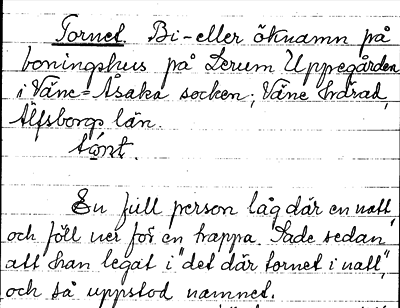 Tornet. Bi- eller öknamn på
boningshus på Lerum Uppegården
i Väne-Åsaka socken, Väne härad,
Älfsborgs län.
En full person låg där en natt,
och föll ner för en trappa. Sade sedan
att han legat i "det där tornet i natt",
och så uppstod namnet.